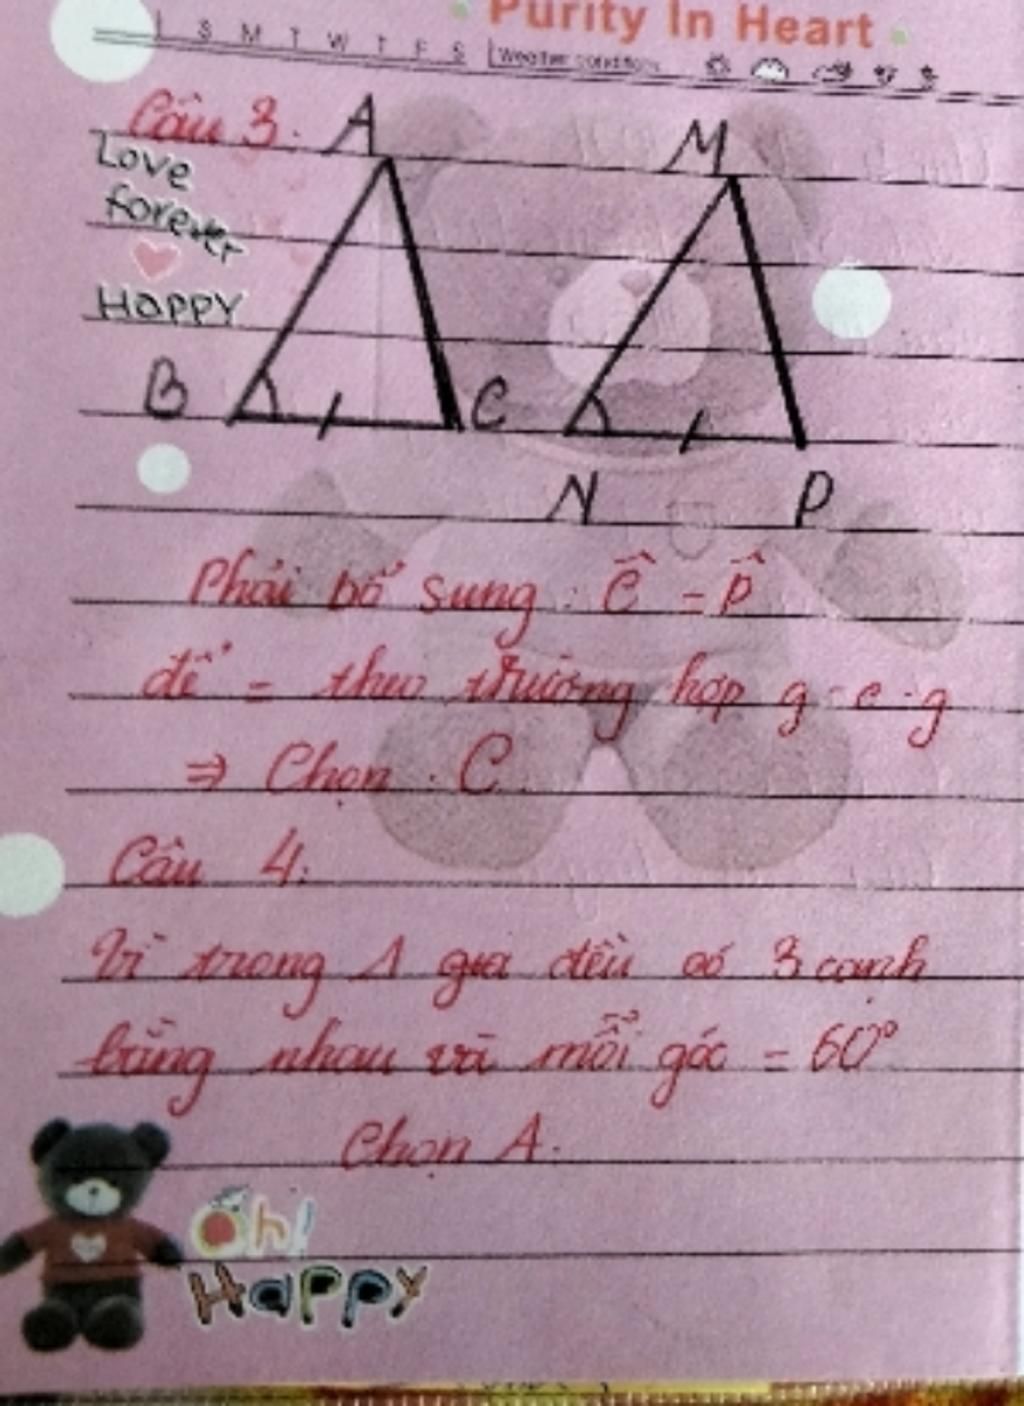 Purity In Heart
S M T W T F S Weather condition
Câu 3. A M
Love
forever
HAPPY
B C
N P
Phải bổ sung : Ĉ = P̂
để = theo trường hợp g-c-g
⇒ Chọn . C.
Câu 4:
Vì trong Δ gia đều có 3 cạnh
bằng nhau và mỗi góc = 60°
Chọn A.
Oh!
Happy